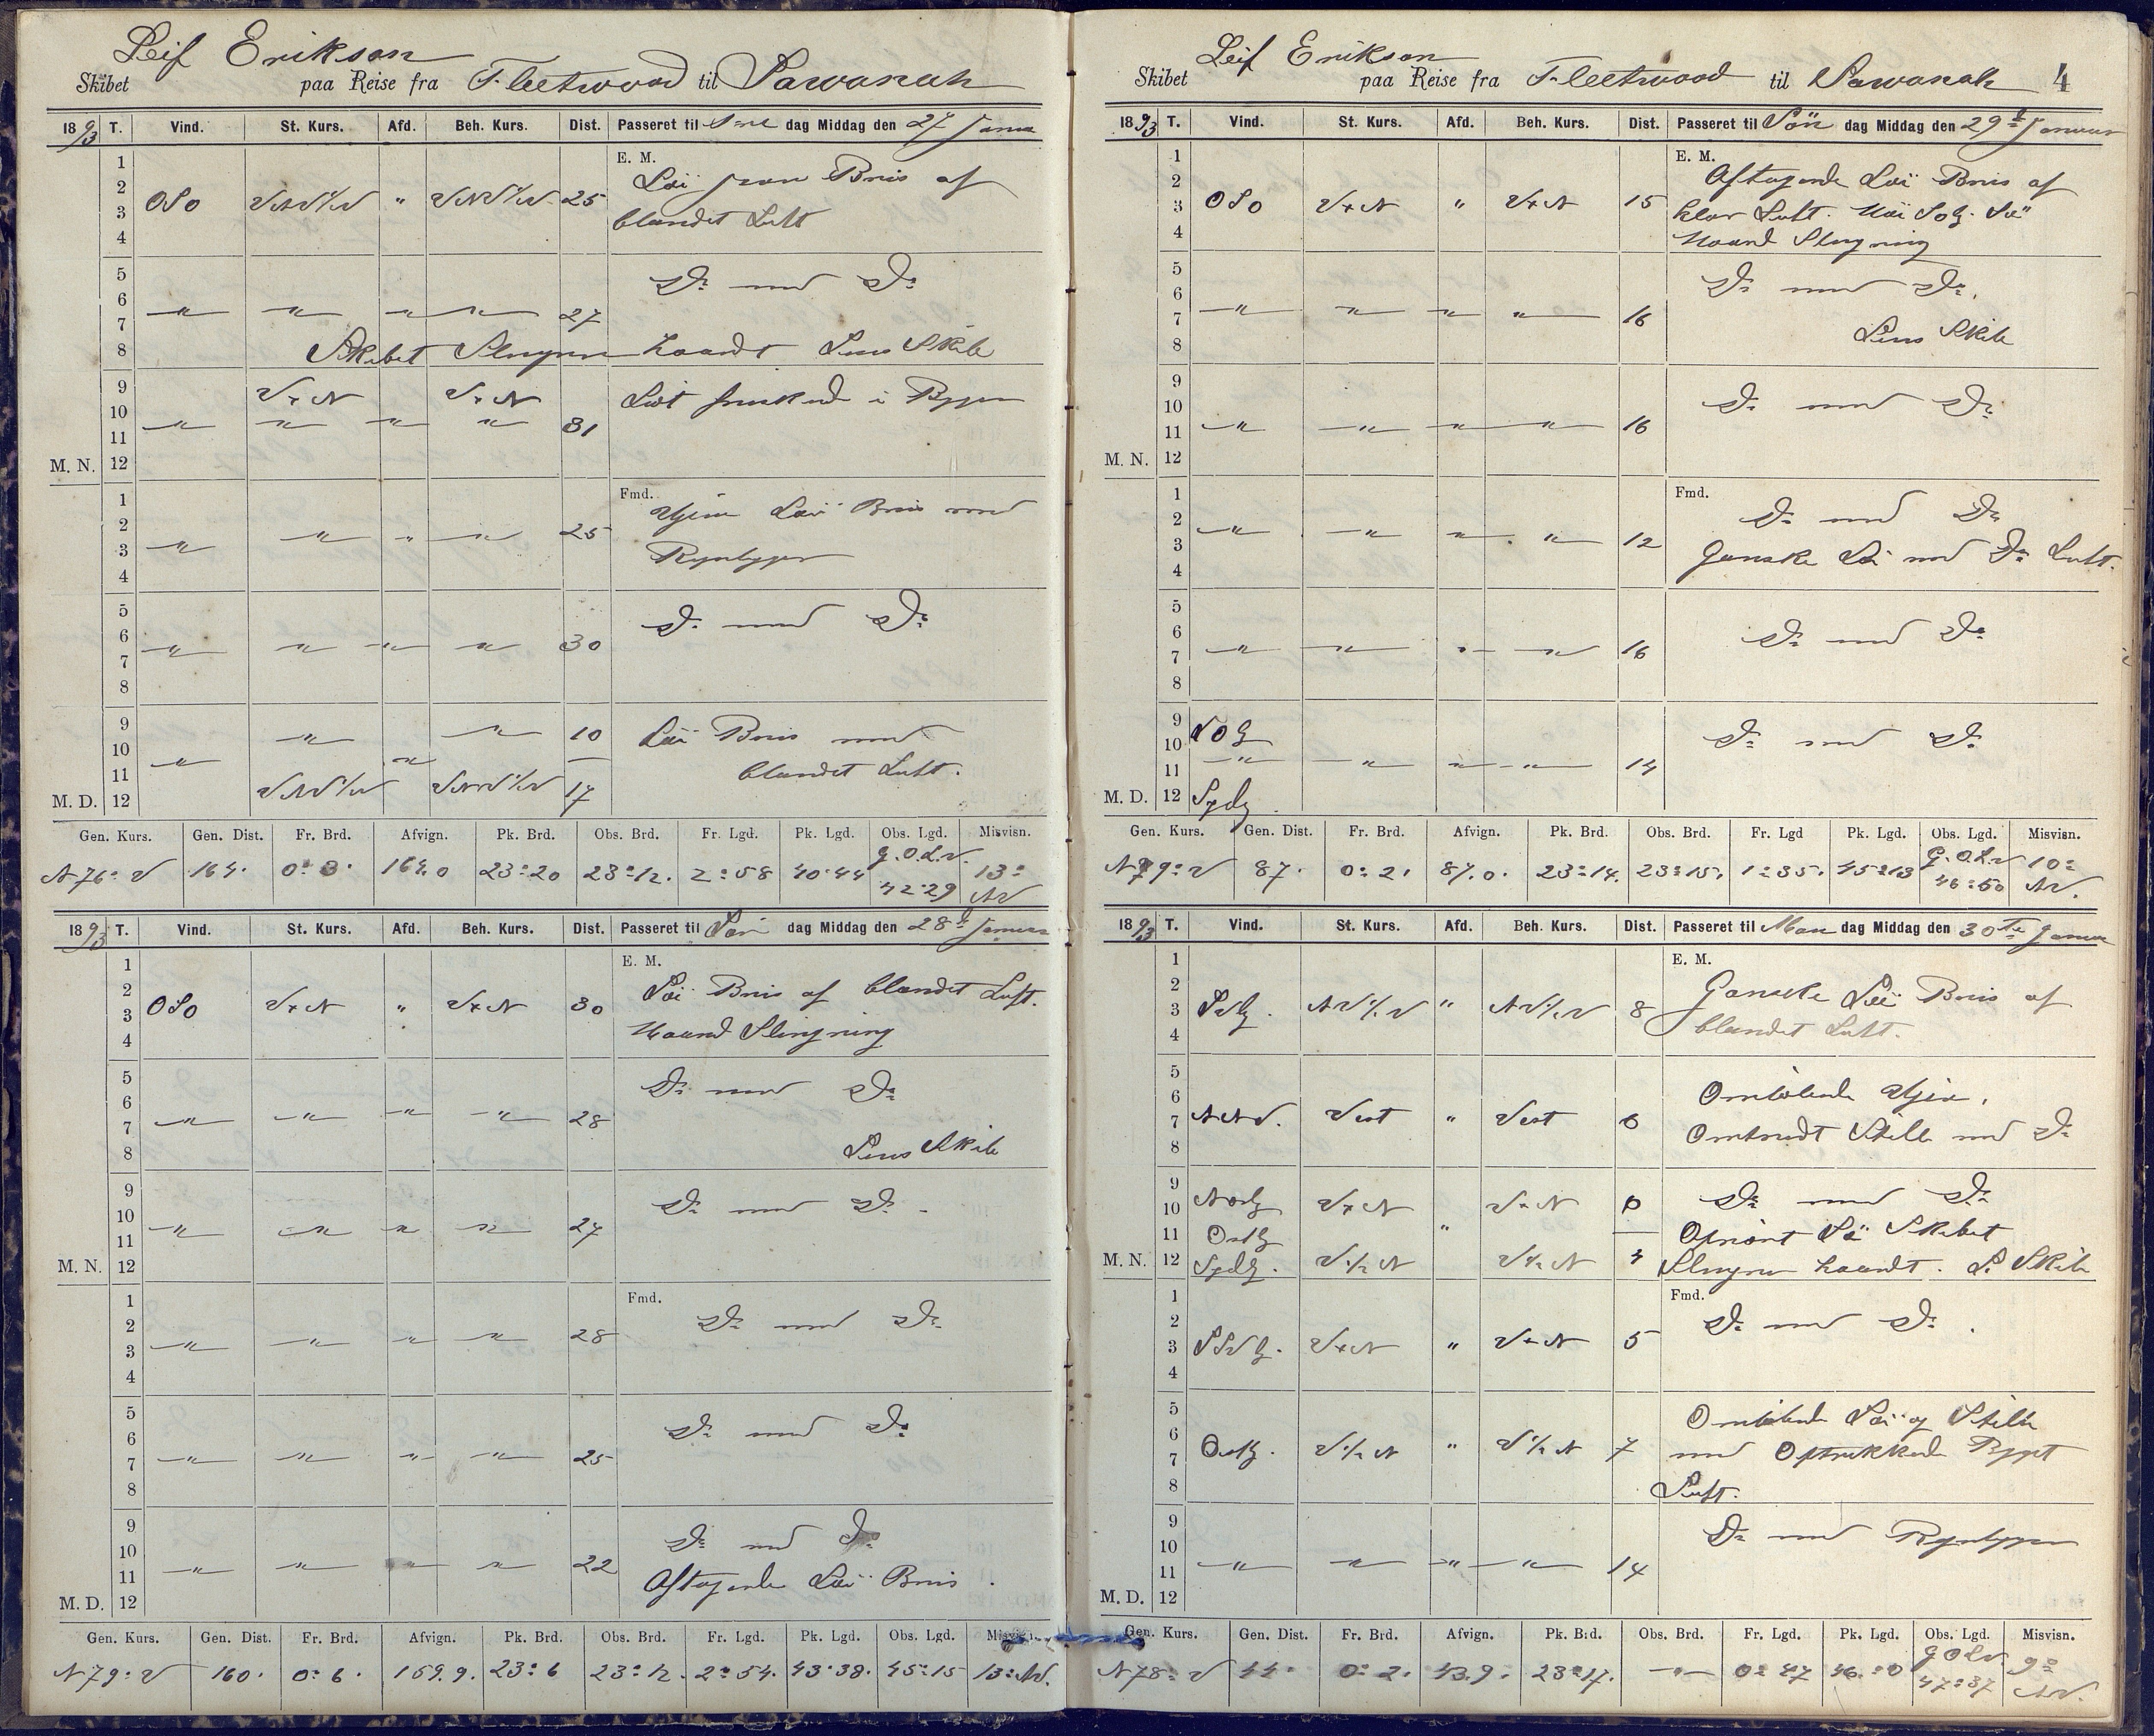 Leif Erikson
Skibet paa Reise fra Fleetwood til Sawanah
1893 T. Vind. St. Kurs. Afd. Beh. Kurs. Dist. Passeret til dag Middag den 27 Januar
E. M.
1
2
3
4
OSO " 25 Lai Bris af
blandet Luft
5
6
7
8
" " " " 27 Do med Do
Skibet haardt Lens Skib
9
10
11
M. N. 12
VxN VxN
" " " " 31 Lidt i
Fmd.
1
2
3
4
" " " " 25 Lai Bris med
5
6
7
8
" " " " 30 Do med Do
9
10
11
M. D. 12
" " " " 10 Lai Bris med
17 blandet Luft.
Gen. Kurs. Gen. Dist. Fr. Brd. Afvign. Pk. Brd. Obs. Brd. Fr. Lgd. Pk. Lgd. Obs. Lgd. Misvisn.
G.O.L.V.
N 76° V 164. 164,0 23°20 23°12. 2°58 40°44 42°29 13° NV
1893 T. Vind. St. Kurs. Afd. Beh. Kurs. Dist. Passeret til dag Middag den 28 Januar
E. M.
1
2
3
4
OSO VxN " VxN 30 Lai Bris af blandet Luft.
Haard Slingring
5
6
7
8
" " " " 28 Do med Do
Lens Skib
9
10
11
M. N. 12
" " " " 27 Do med Do
Fmd.
1
2
3
4
" " " " 28 Do med Do
5
6
7
8
" " " " 25 Do med Do
9
10
11
M. D. 12
" " " " 22 Do med Do
Aftagende Lai Bris.
Gen. Kurs. Gen. Dist. Fr. Brd. Afvign. Pk. Brd. Obs. Brd. Fr. Lgd. Pk. Lgd. Obs. Lgd. Misvisn.
N 79° V 160. 0° 6. 159.9. 23° 6 23°12. 2°54. 43°38. 45°15 13° NV.
Leif Erikson
Skibet paa Reise fra Fleetwood til Sawanah 4
1893 T. Vind. St. Kurs. Afd. Beh. Kurs. Dist. Passeret til Sön dag Middag den 29 Januar
E. M.
1
2
3
4
OSO VxN " VxN 15 Aftagende Lai Bris af
klar Luft.
Haard Slingring
5
6
7
8
" " " " 16 Do med Do.
Lens Skib
9
10
11
M. N. 12
" " " " 16 Do med Do
Fmd.
1
2
3
4
" " " " 12 Do med Do
Ganske Lai med Do Luft.
5
6
7
8
" " " " 16 Do med Do
9
10
11
M. D. 12
" " " " 14 Do med Do
Sydlg
Gen. Kurs. Gen. Dist. Fr. Brd. Afvign. Pk. Brd. Obs. Brd. Fr. Lgd Pk. Lgd. Obs. Lgd. Misvisn.
G.O.L.V
N 79° V 87. 0° 2. 87.0. 23°14. 23°15. 1°35. 45°13 46°50 10° NV.
1893 T. Vind. St. Kurs. Afd. Beh. Kurs. Dist. Passeret til Man dag Middag den 30te Januar
E. M.
1
2
3
4
NV½V " NV½V 8 Ganske Lai Bris af
blandet Luft.
5
6
7
8
NNV. Vest " Vest 6 Omlöbende
Omtrent Stille med Do
9
10
11
M. N. 12
Nordlg VxN VxN Do med Do
Ostlg " Skibet
Sydlg. V½N V½N 4 haardt. L. Skib
Fmd.
1
2
3
4
SSVlg. VxN " VxN 5 Do med Do.
5
6
7
8
Ostlg. V½N " V½N 7 Omlöbende Lai og Stille
med
Luft.
9
10
11
M. D. 12
" " " " 14 Do med
Gen. Kurs. Gen. Dist. Fr. Brd. Afvign. Pk. Brd. Obs. Brd. Fr. Lgd. Pk. Lgd. Obs. Lgd. Misvisn.
G O L V.
N 78° V 44. 0° 2. 43.9. 23°17. " 0° 47 47°37 9° NV.